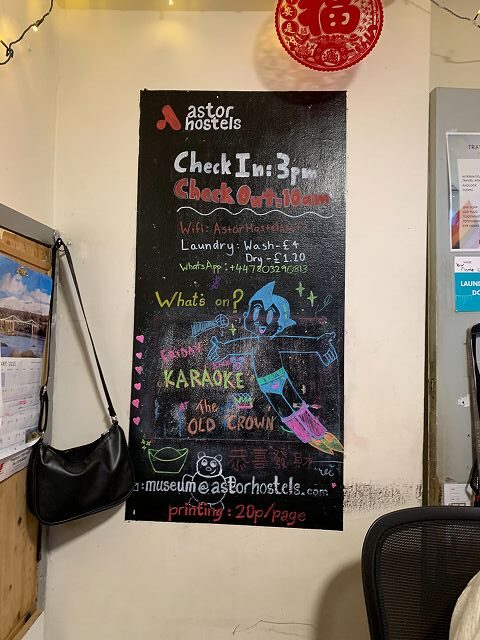 福
astor
hostels
Check In: 3pm
Check Out: 10am
Wifi: AstorHostels
Laundry: Wash-£4
Dry-£1.20
WhatsApp: +447803290813
What's on?
FRIDAY
KARAOKE
AT The
OLD CROWN
恭喜發財
:museum@astorhostels.com
printing: 20p/page
TRAV
LAUN
DO